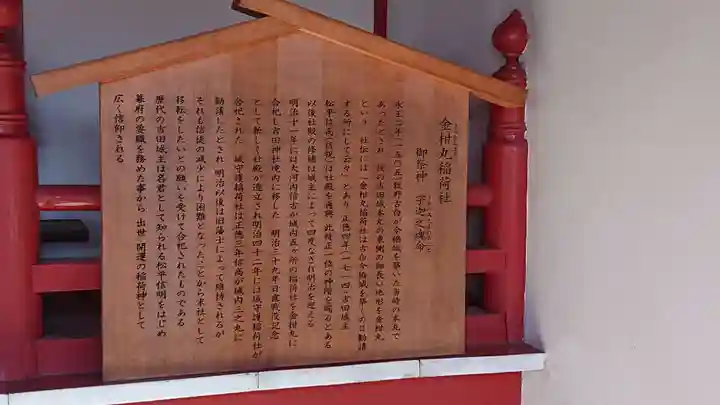 金柑丸稲荷社
御祭神 宇迦之魂命
永正二年(一五〇五)牧野古白が今橋城を築いた当時の本丸で
あったとされ 後の吉田城本丸の東側の細長い地形を金柑丸
という 社伝には「金柑丸稲荷社は古白今橋城を築くの日勧請
する所にして云々」とあり 正徳四年(一七一四)吉田城主
松平信高(信祝)は社殿を再興 此時正一位の神階を賜るとある
以後社殿の修補は城主によって四度なされ明治を迎える
明治十一年には大河内信古が城内五ヶ所の稲荷社を金柑丸に
合祀し吉田神社境内に移した 明治三十九年日露戦役記念
として新しく社殿が造立され明治四十二年には城守護稲荷社が
合祀された 城守護稲荷社は正徳三年信高が城内三之丸に
勧請したとされ 明治以後は旧藩士によって維持されるが
それも信徒の減少により困難となったことから末社として
移転をしたいとの願いを受けて合祀されたものである
歴代の吉田城主は名君として知られる松平信明をはじめ
幕府の要職を務めた事から 出世 開運の稲荷神として
広く信仰される